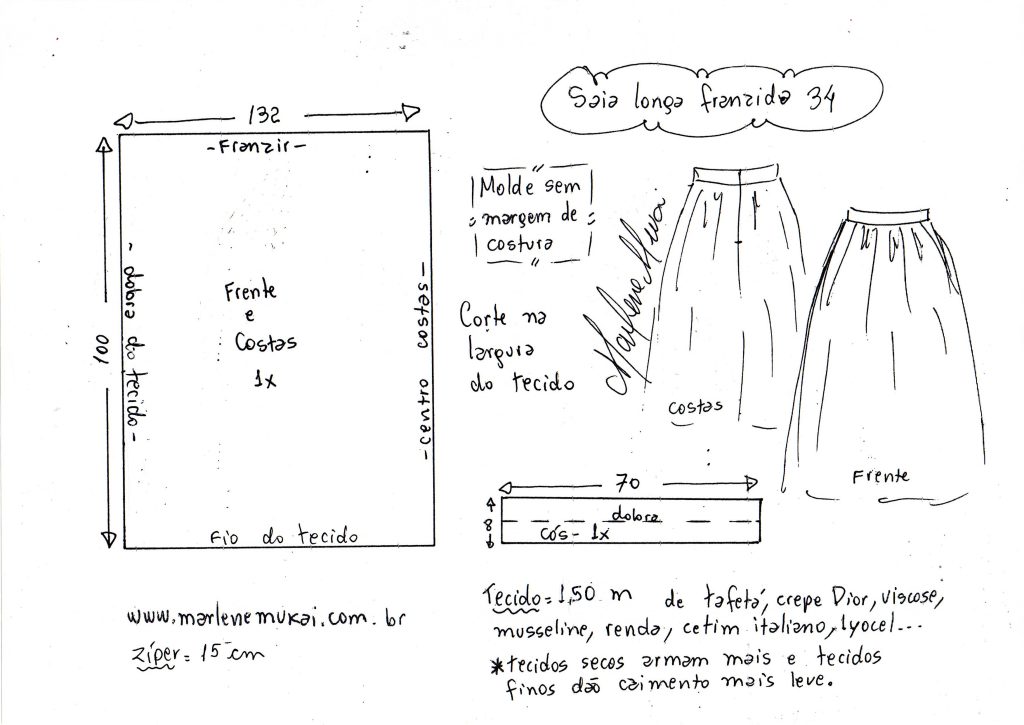 Saia longa franzida 34
132
-Franzir-
100
-dobra do tecido-
Frente
e
Costas
1x
-centro costas-
Fio do tecido
Molde sem
margem de
costura
Corte na
largura
do tecido
Marlene Mukai
costas
Frente
70
8
dobra
cós- 1x
www.marlenemukai.com.br
zíper= 15 cm
Tecido= 1,50 m de tafetá, crepe Dior, viscose,
musseline, renda, cetim italiano, lyocel...
*tecidos secos armam mais e tecidos
finos dão caimento mais leve.